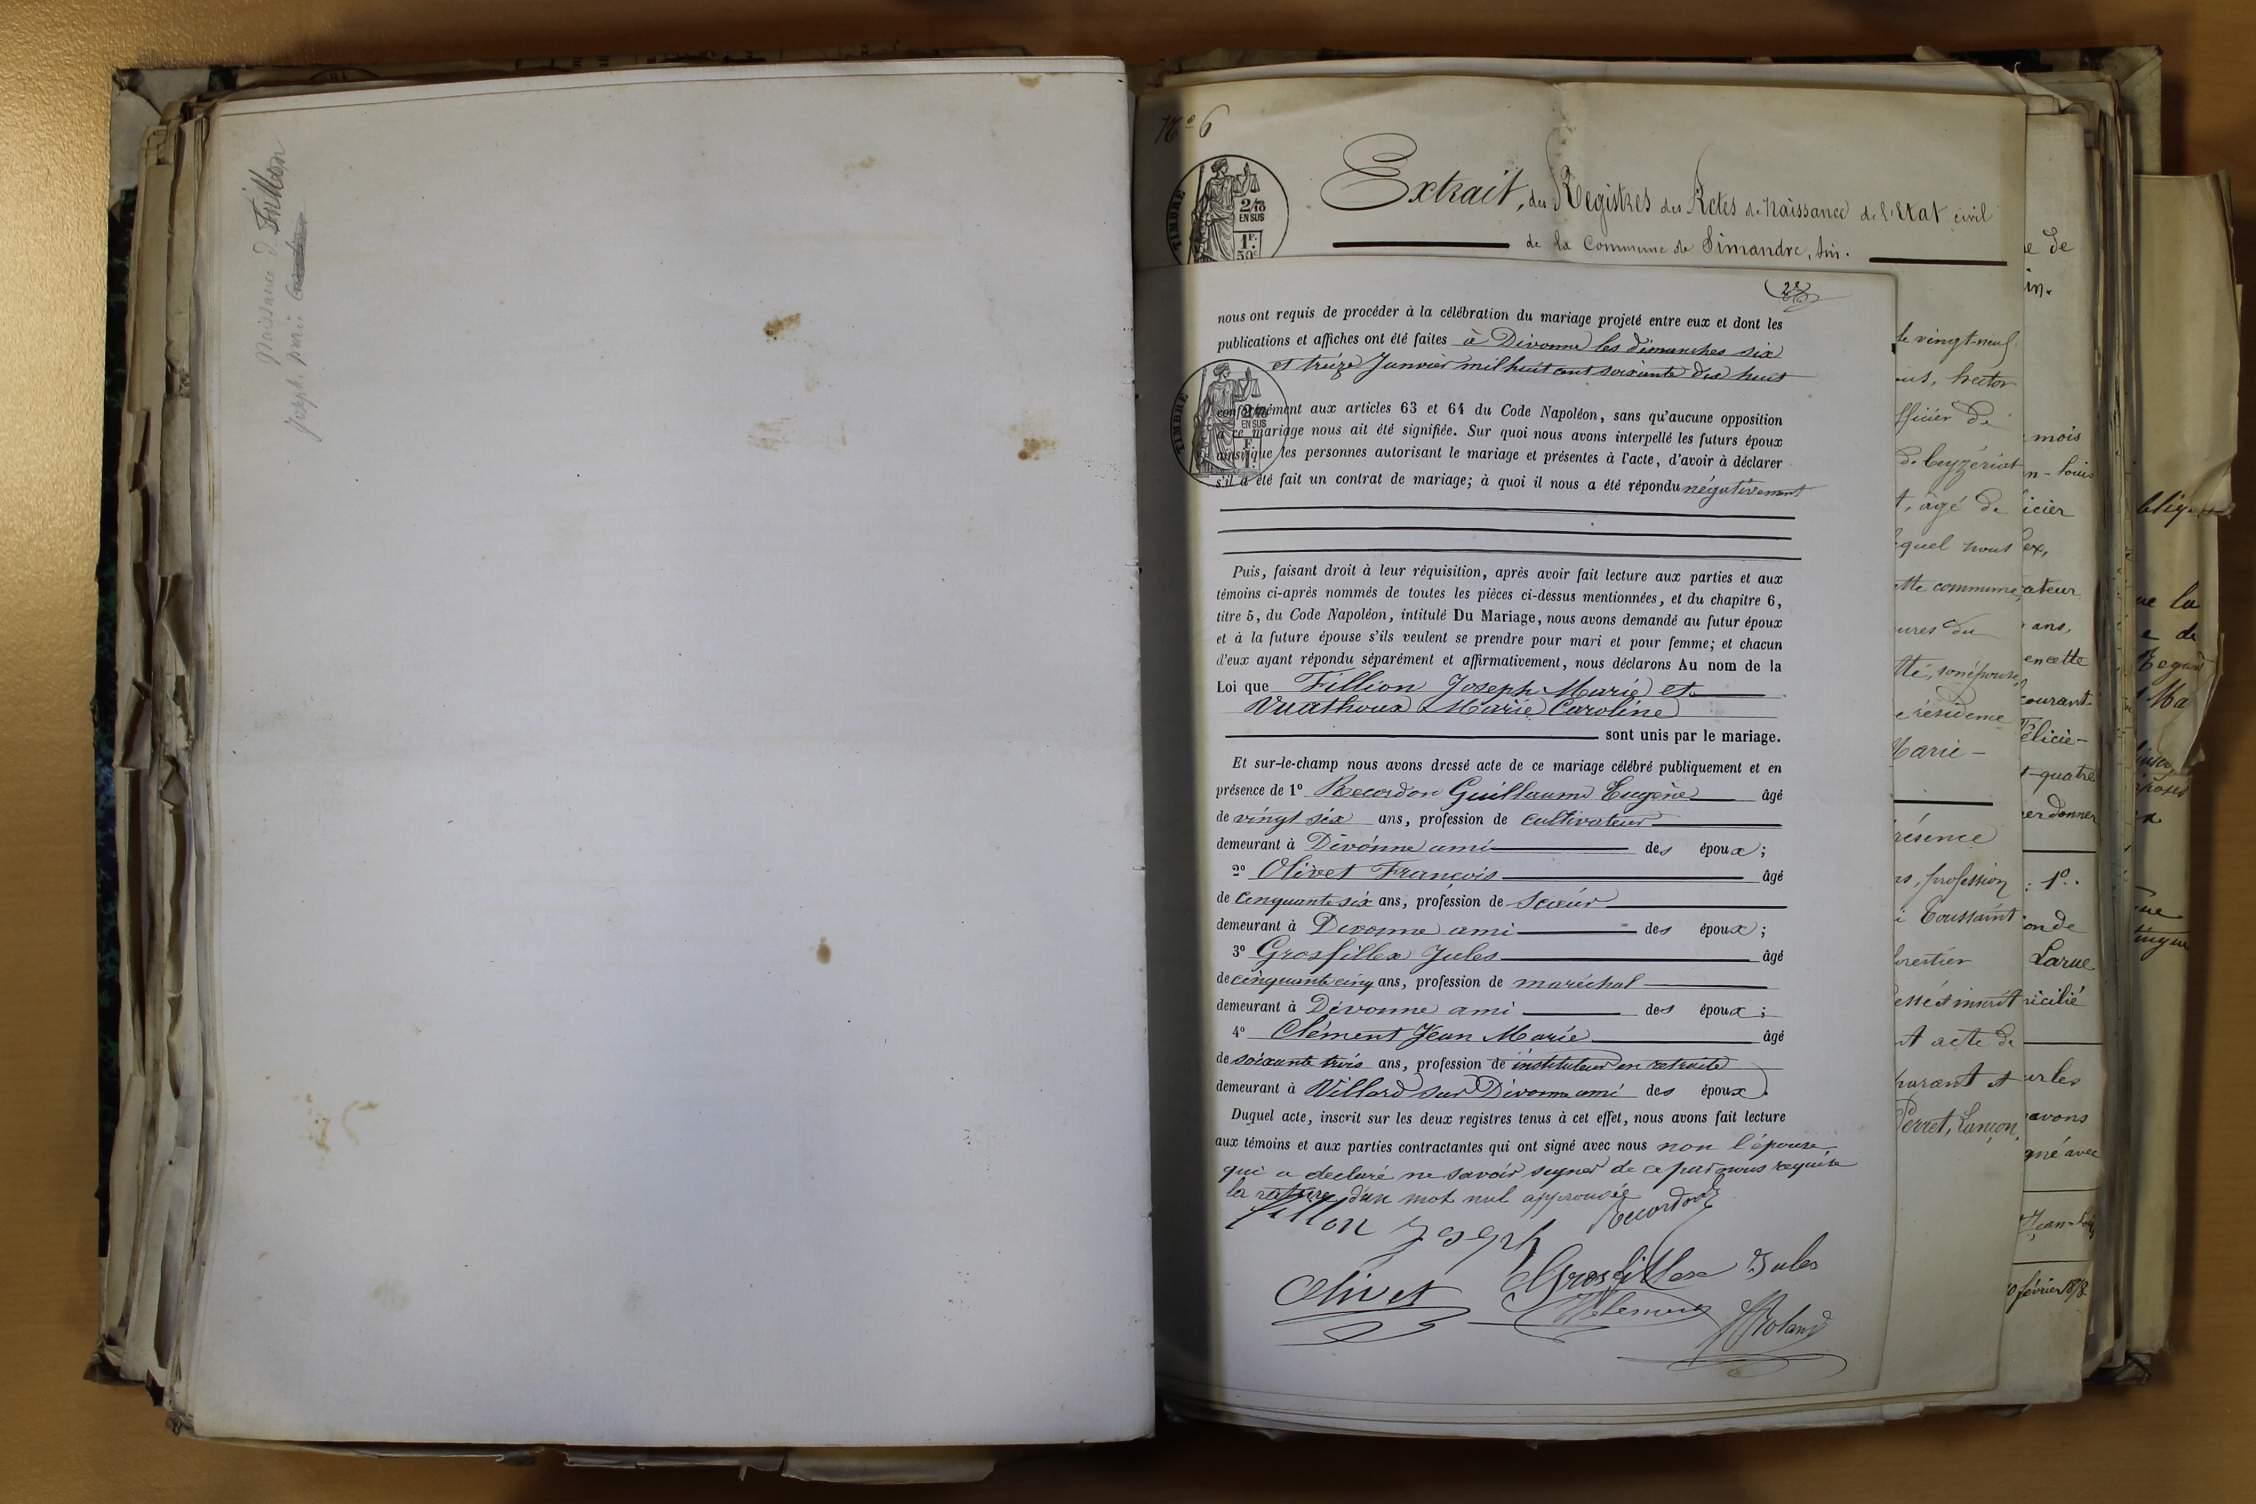 Naissance d Fillion
Joseph Marie
No 6
Extrait, des Registres des Actes de Naissance de l'Etat civil
de la Commune de Simandre, Ain.
TIMBRE
2/10
EN SUS
1F.
50c
nous ont requis de procéder à la célébration du mariage projeté entre eux et dont les
publications et affiches ont été faites à Divonne les dimanches six
et treize Janvier mil huit cent soixante dix huit
TIMBRE
2/10
EN SUS
conformément aux articles 63 et 64 du Code Napoléon, sans qu'aucune opposition
à ce mariage nous ait été signifiée. Sur quoi nous avons interpellé les futurs époux
ainsi que les personnes autorisant le mariage et présentes à l'acte, d'avoir à déclarer
s'il a été fait un contrat de mariage; à quoi il nous a été répondu négativement
Puis, faisant droit à leur réquisition, après avoir fait lecture aux parties et aux
témoins ci-après nommés de toutes les pièces ci-dessus mentionnées, et du chapitre 6,
titre 5, du Code Napoléon, intitulé Du Mariage, nous avons demandé au futur époux
et à la future épouse s'ils veulent se prendre pour mari et pour femme; et chacun
d'eux ayant répondu séparément et affirmativement, nous déclarons Au nom de la
Loi que Fillion Joseph Marie et
Vuathoux Marie Caroline
sont unis par le mariage.
Et sur-le-champ nous avons dressé acte de ce mariage célébré publiquement et en
présence de 1o Recordon Guillaume Eugène âgé
de vingt six ans, profession de cultivateur
demeurant à Divonne ami des époux;
2o Olivet François âgé
de cinquante six ans, profession de scieur
demeurant à Divonne ami des époux;
3o Grosfillex Jules âgé
de cinquante cinq ans, profession de maréchal
demeurant à Divonne ami des époux;
4o Clément Jean Marie âgé
de soixante trois ans, profession de instituteur en retraite
demeurant à Villard sur Divonne ami des époux.
Duquel acte, inscrit sur les deux registres tenus à cet effet, nous avons fait lecture
aux témoins et aux parties contractantes qui ont signé avec nous non l'épouse
qui a declaré ne savoir signer de ce par nous requise
la rature d'un mot nul approuvée
fillon Joseph Recordon
Olivet Grosfillex Jules
Clément Roland
le vingt-neuf
hector
officier de
de Ceyzériat
, âgé de
quel nous
ette commune,
ures du
té, son épouse,
e résidence
Marie-
résence
s, profession
i Toussaint
forestier
et inscrit
t acte de
parant et
Perret, Lançon,
e de
in.
mois
n-Louis
icier
ex,
ateur
ans,
en cette
courant
Félicie-
t-quatre
er donner
: 1o.
on de
Larue
icilié
ur les
avons
gné avec
Jean-Louis
0 février 1878
ue la
e de
Ma